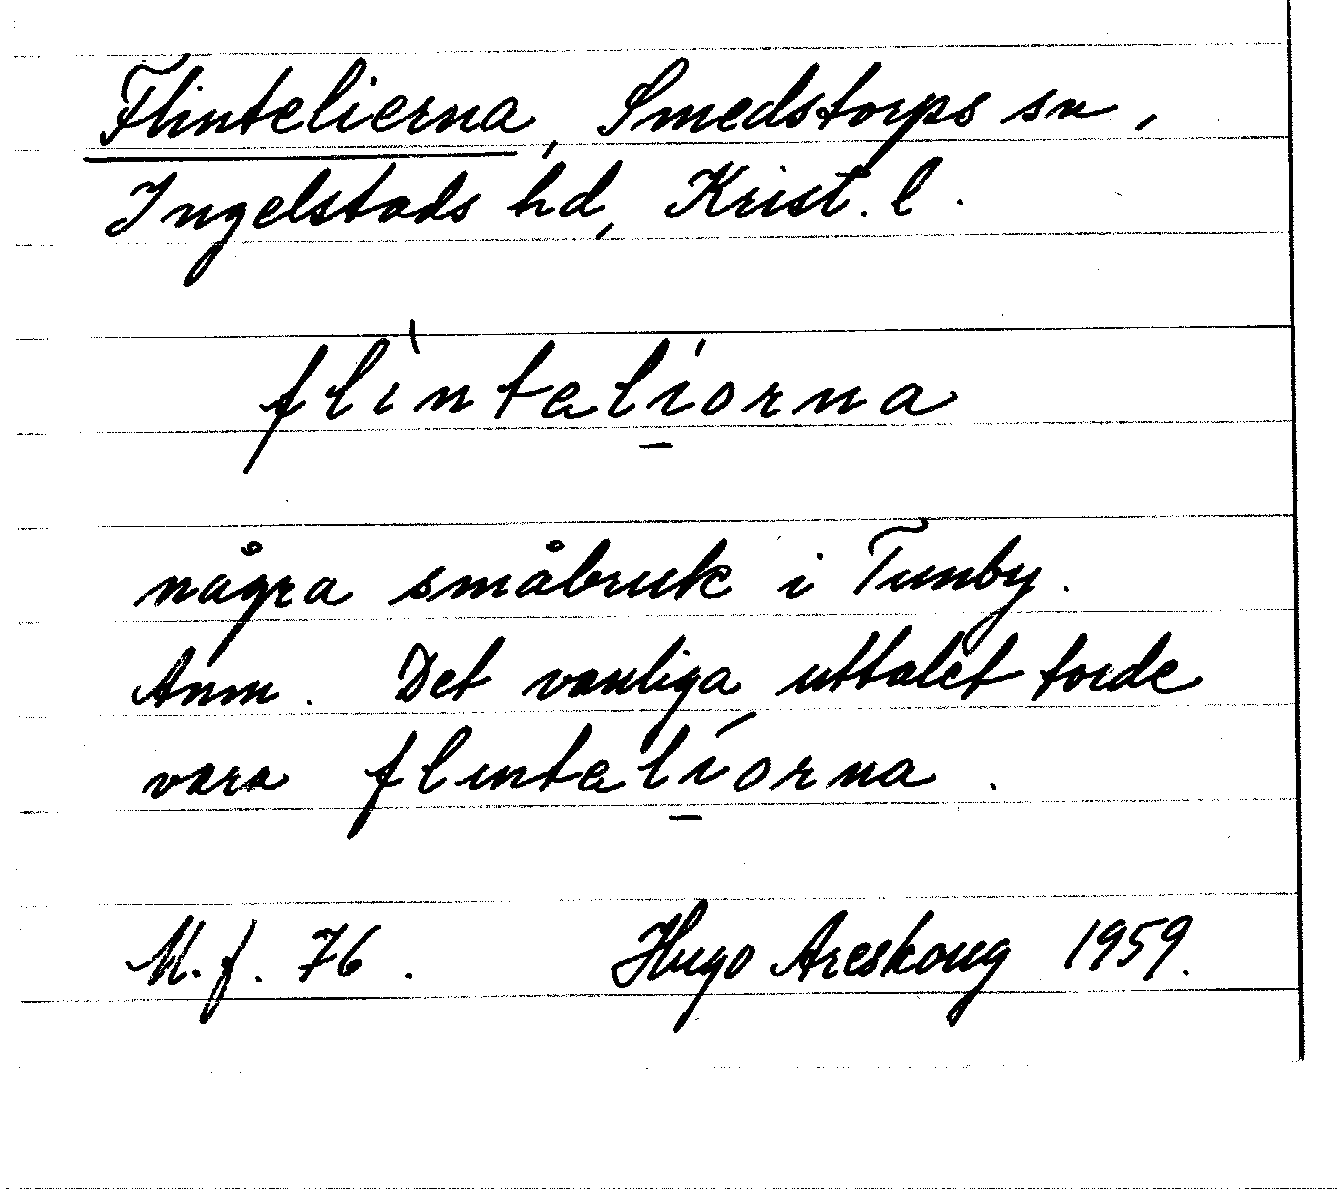 Flintelierna, Smedstorps sn,
Ingelstads hd, Krist. l.
flìntalíorna
några småbruk i Tunby.
Anm. Det vanliga uttalet torde
vara flintalíorna.
M.f. 76. Hugo Areskoug 1959.